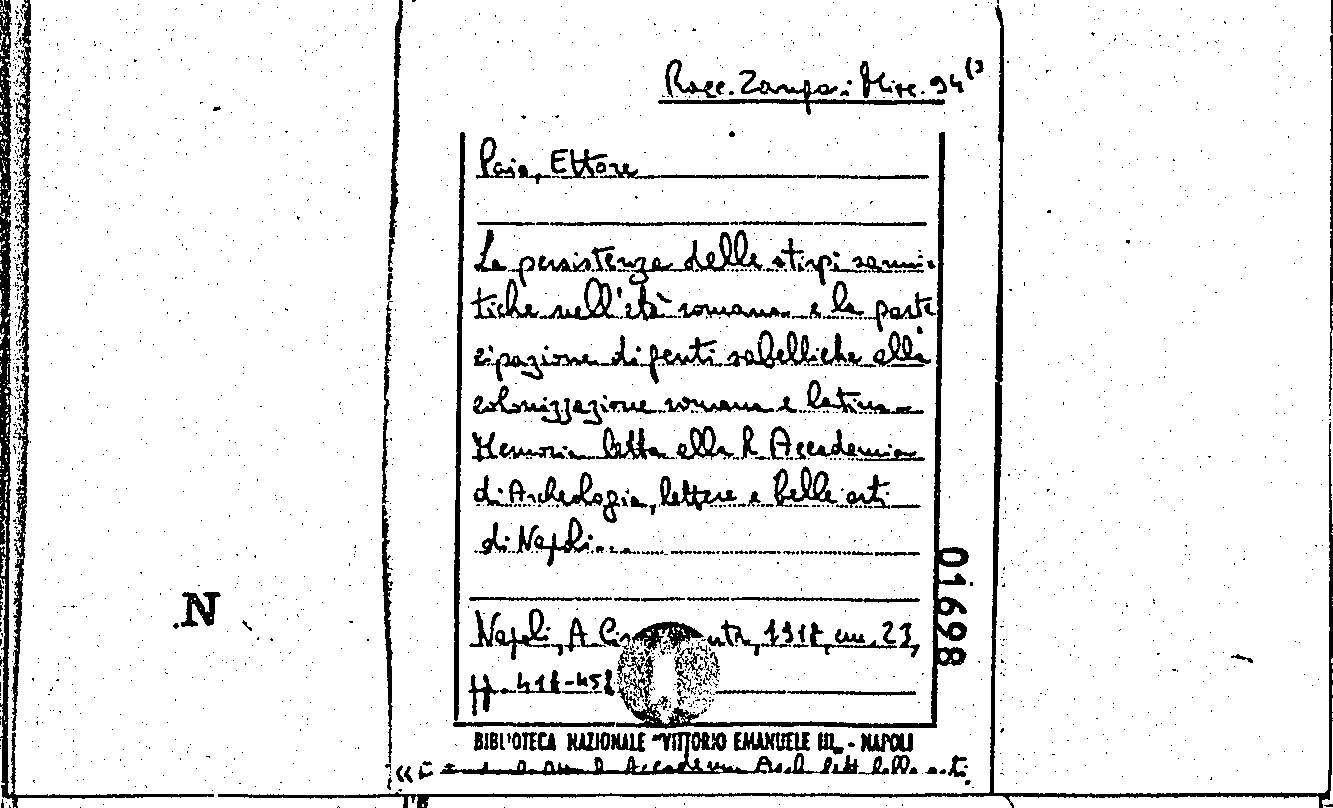 Racc. Zangari Misc. 94(3
Pais, Ettore
La persistenza delle stirpi sanni-
tiche nell'età romana e la parte
cipazione di genti sabelliche alla
colonizzazione romana e latina
Memoria letta alla R Accademia
di Archeologia, lettere e belle arti
di Napoli...
Napoli, A 1918, cm. 23,
pp. 418-458
01698
N
BIBLIOTECA NAZIONALE "VITTORIO EMANUELE III„ - NAPOLI
Accadem Arch. lett. belle arti.